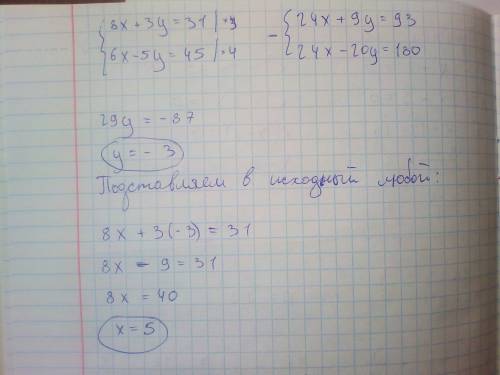 8x + 3y = 31 | ·3
6x - 5y = 45 | ·4
- 24x + 9y = 93
24x - 20y = 180
29y = -87
y = - 3
Подставляем в исходный любой:
8x + 3(-3) = 31
8x - 9 = 31
8x = 40
x = 5